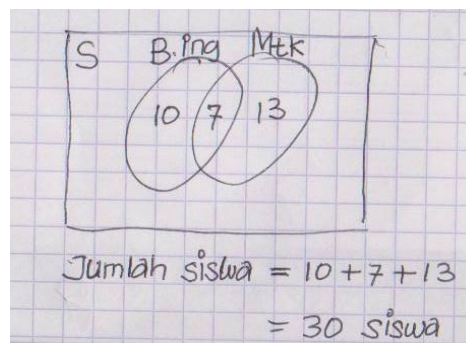 S B.ing Mtk
10 7 13
Jumlah siswa = 10 + 7 + 13
= 30 siswa